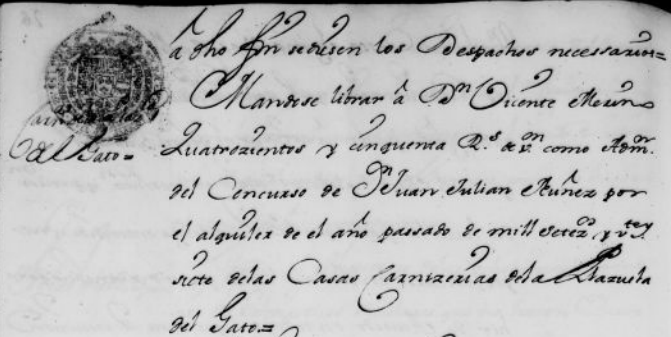 â dho fin se diesen los Despachos necessarios=
Mandose librar â Dn Vicente Merino
Quatrozientos y cinquenta Rs de vn como Admr
del Concurso de Dn Juan Julian Nuñez por
el alquiler de el año passado de mill setezs y vte y
siete delas Casas Carnizerias dela Plazuela
del Gato=
Carnizerias de la Pla
del Gato=